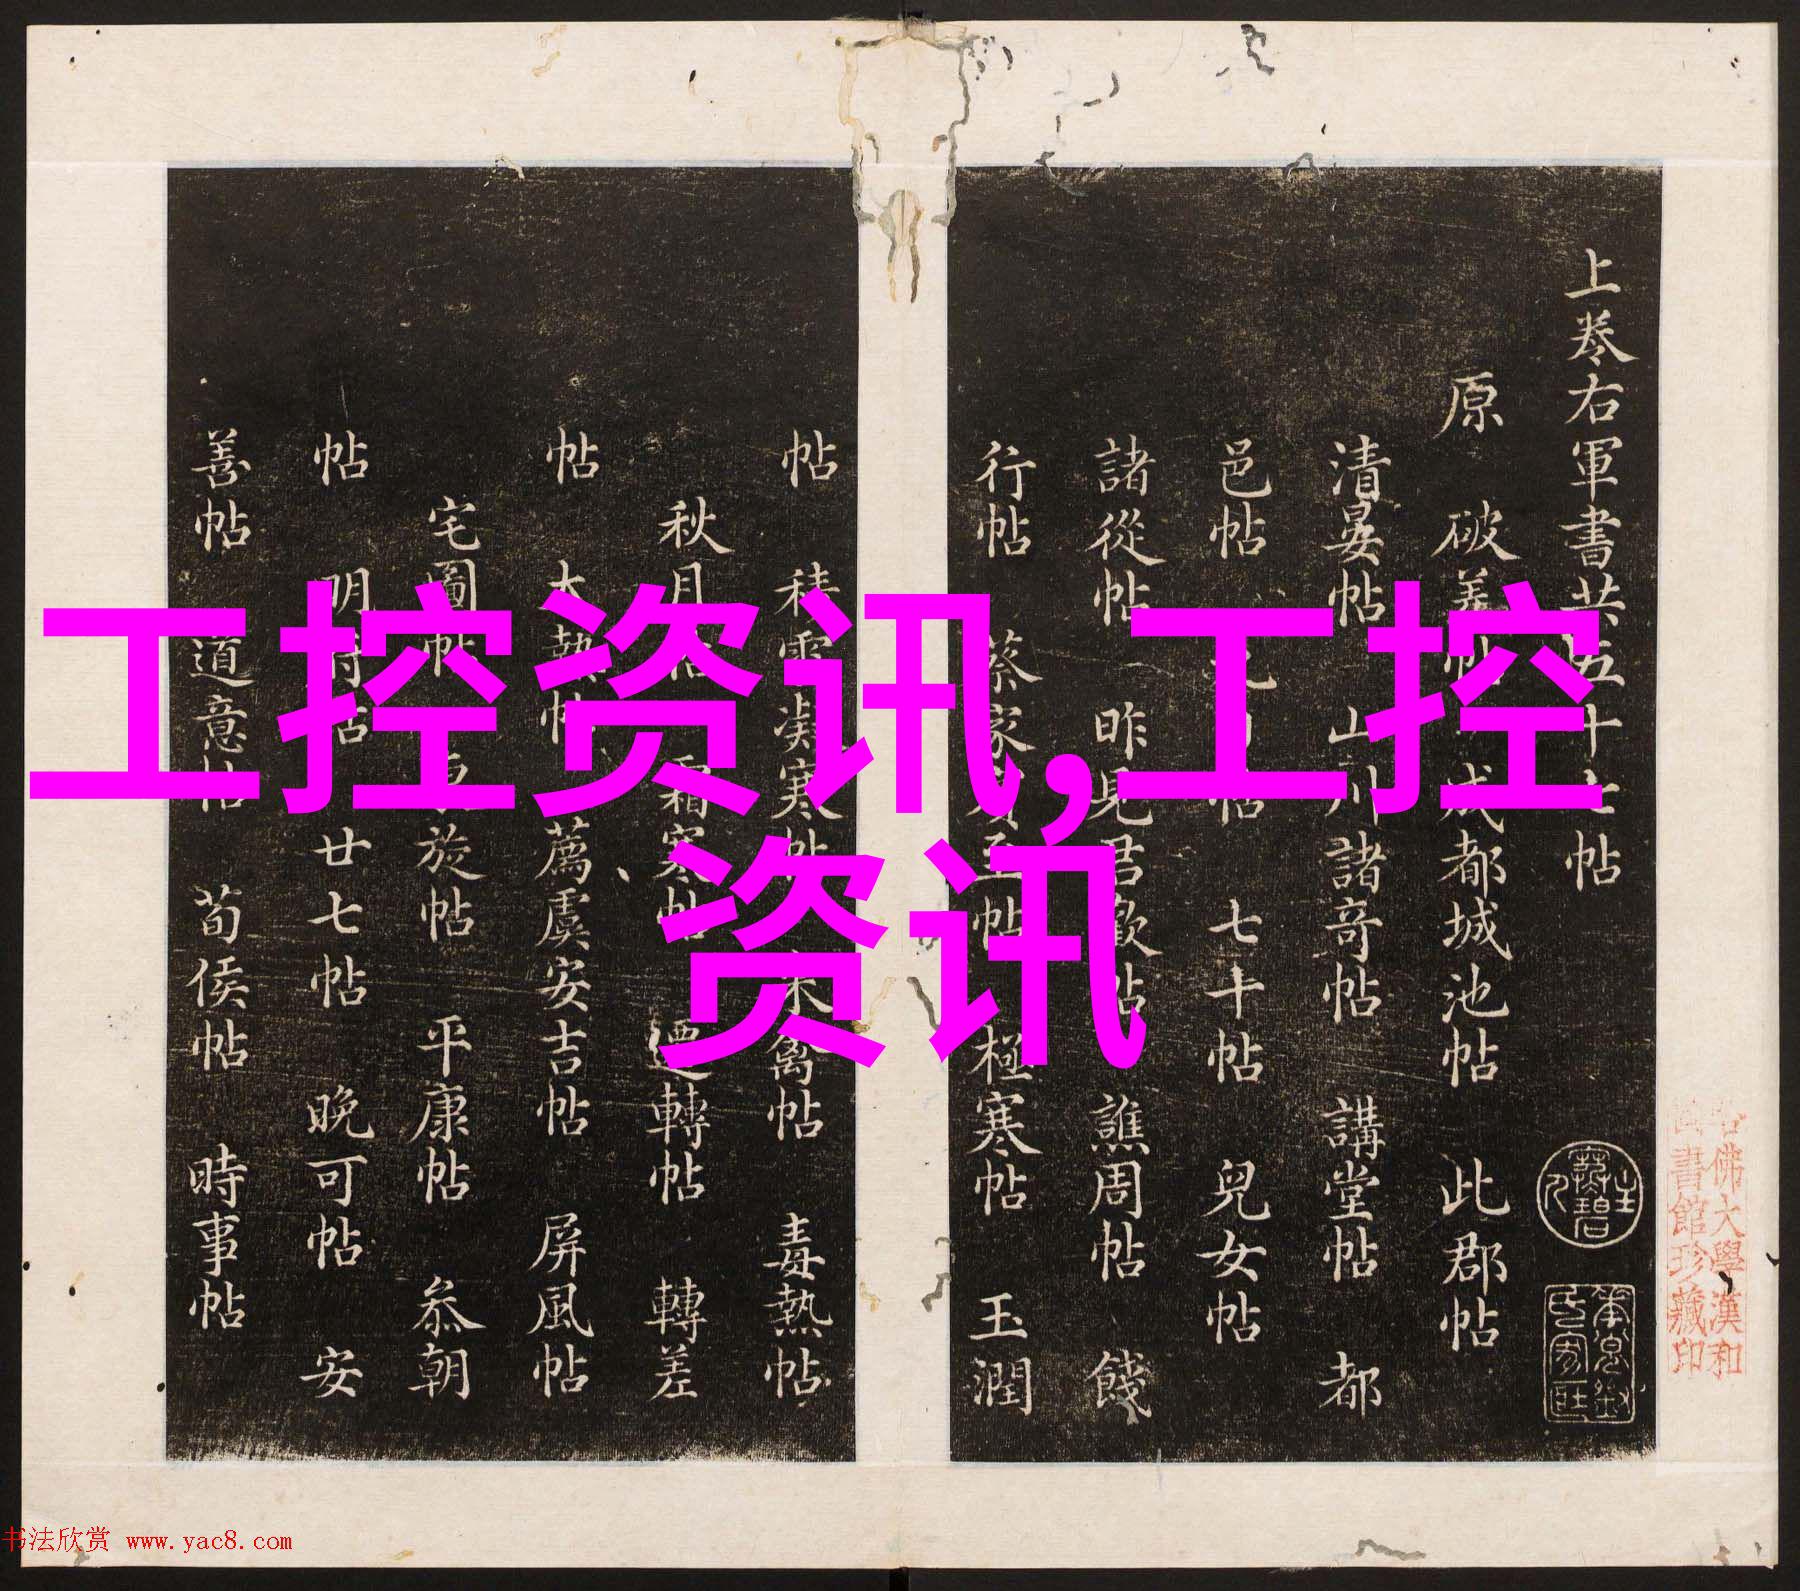 上卷右軍書共五十七帖
原 破羌帖 成都城池帖 此郡帖
清晏帖 山川諸奇帖 講堂帖 都
邑帖 七十帖 兒女帖
諸從帖 昨見君歡帖 譙周帖 餞
行帖 蔡家賓至帖 極寒帖 玉潤
帖 積雪凝寒帖 來禽帖 毒熱帖
秋月帖 霜寒帖 遷轉帖 轉差
帖 大熱帖 薦虞安吉帖 屏風帖
宅圖帖 旋帖 平康帖 叅朝
帖 明府帖 廿七帖 晚可帖 安
善帖 道意帖 荀侯帖 時事帖
工控资讯,工控
资讯
佛大學漢和
圖書館珍藏印
书法欣赏 www.yac8.com